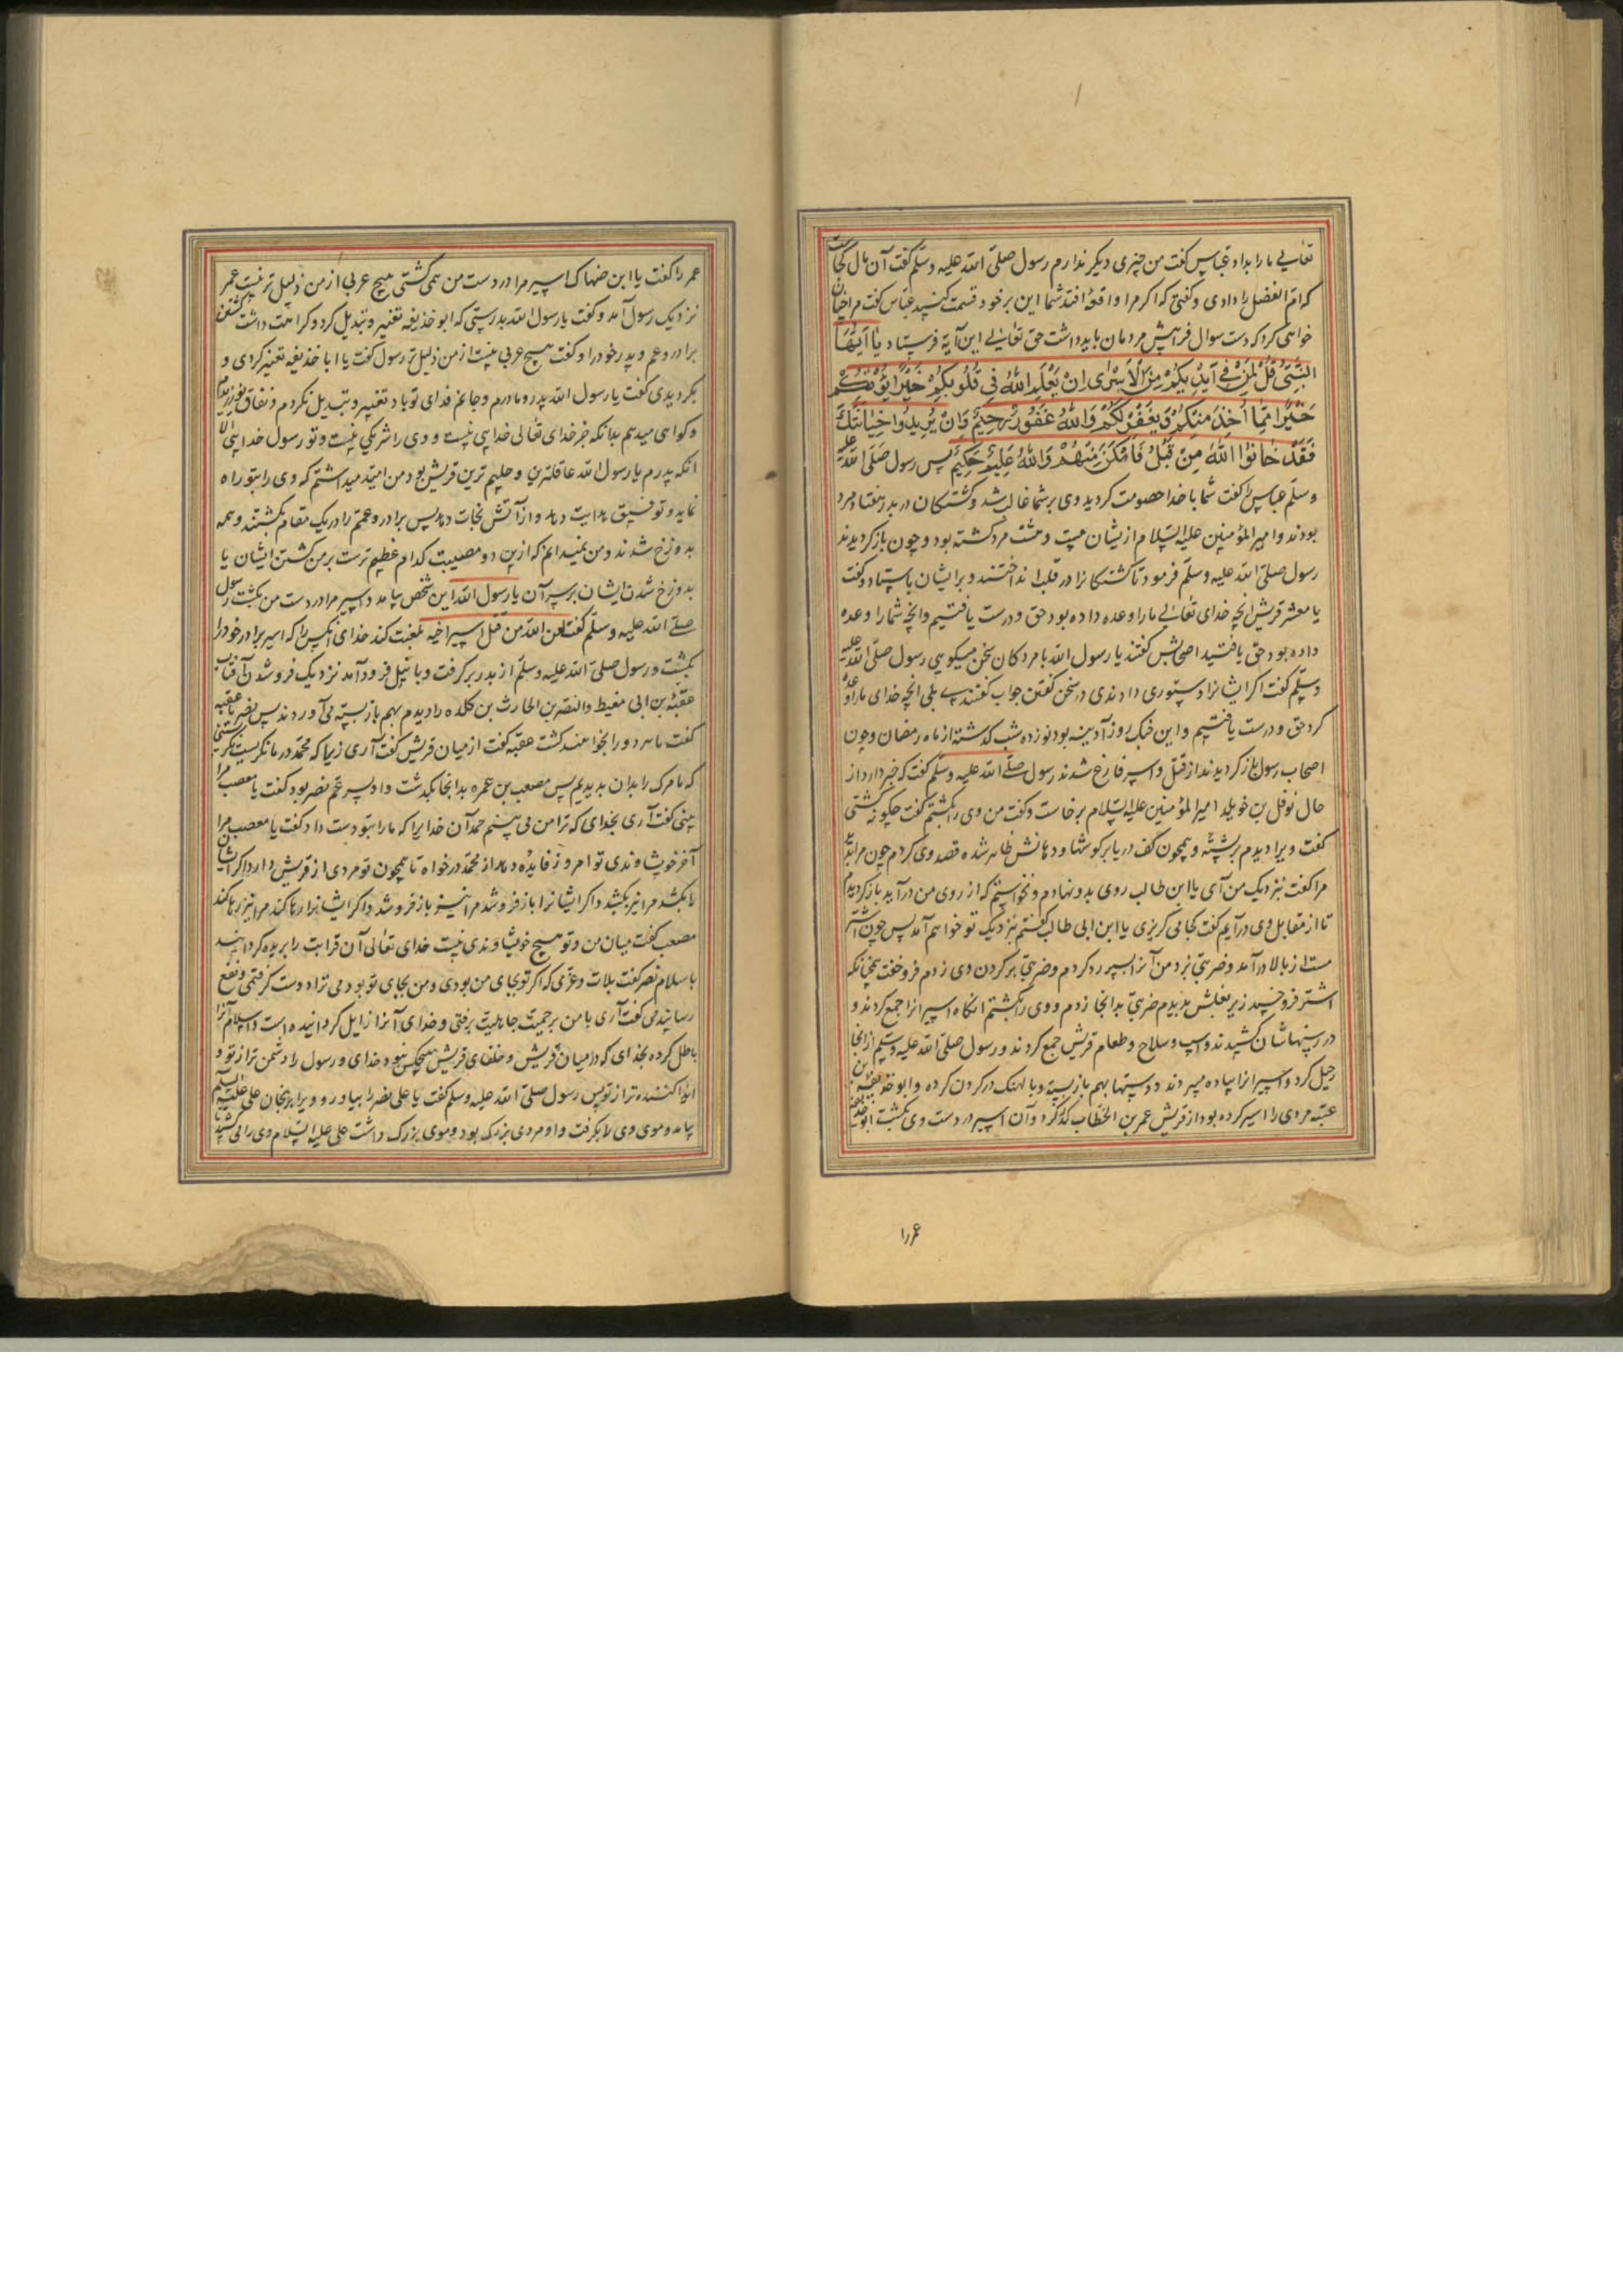 تعالی ما را بداد عباس گفت من چیزی دیگر ندارم رسول صلی الله علیه وسلم گفت آن مال کجاست
که ام الفضل را دادی و گفتی که اگر مرا واقعهٔ افتد شما این بر خود قسمت کنید عباس گفت مرا چنان
خواهی کرد که دست سوال فرا پیش مردمان باید داشت حق تعالی این آیة فرستاد یَا اَیُّهَا
النَّبِیُّ قُلْ لِمَنْ فِی اَیْدِیکُمْ مِنَ الْاَسْرٰی اِنْ یَعْلَمِ اللّٰهُ فِی قُلُوبِکُمْ خَیْرًا یُؤْتِکُمْ
خَیْرًا مِمَّا اُخِذَ مِنْکُمْ وَیَغْفِرْ لَکُمْ وَاللّٰهُ غَفُورٌ رَحِیمٌ وَاِنْ یُرِیدُوا خِیَانَتَکَ
فَقَدْ خَانُوا اللّٰهَ مِنْ قَبْلُ فَاَمْکَنَ مِنْهُمْ وَاللّٰهُ عَلِیمٌ حَکِیمٌ پس رسول صلی الله علیه
وسلم عباس را گفت شما با خدا خصومت کردید وی بر شما غالب شد و کشتکان در بدر هفتاد مرد
بودند و امیر المؤمنین علیه السلام از یشان بیست و هشت مرد کشته بود و چون باز کردیدند
رسول صلی الله علیه وسلم فرمود تا کشتکانرا در قلب انداختند و بر ایشان باستاد و گفت
یا معشر قریش انچه خدای تعالی ما را وعده داده بود حق و درست یافتیم و انچه شما را وعده
داده بود حق یافتید اصحابش گفتند یا رسول الله با مردکان سخن میکویی رسول صلی الله علیه
وسلم گفت اکر ایشانرا دستوری دادندی در سخن گفتن جواب گفتندی بلی انچه خدای ما را وعده
کرد حق و درست یافتیم و این جنک روز آدینه بود نوزده شب کذشته از ماه رمضان و چون
اصحاب رسول باز کردیدند از قتل و اسیر فارغ شدند رسول صلی الله علیه وسلم گفت که خبر دارد از
حال نوفل بن خویلد امیر المؤمنین علیه السلام برخاست و گفت من وی را بکشتم گفت چکونه کشتی
گفت ویرا دیدم بر پشته و همچون کف دریا بر کوشها و دهانش ظاهر شده قصد وی کردم چون مرا بدید
مرا گفت نزدیک من آی یا ابن طالب روی بدو نهادم و نخواستم که از روی من درآید باز کردیدم
تا از مقابل وی درآیم گفت کجا می کریزی یا ابن ابی طالب گفتم نزدیک تو خواهم آمد پس چون اشتر
مست از بالا درآمد و ضربتی بزد من آنرا سپر رد کردم و ضربتی بر کردن وی زدم فرو خفت همچنانکه
اشتر فرو خسپد زیر بغلش بدیدم ضربتی بدانجا زدم و وی را بکشتم انکاه اسیرانرا جمع کردند و
در رسنهاشان کشیدند و اسب و سلاح و طعام قریش جمع کردند و رسول صلی الله علیه وسلم از انجا
رحیل کرد و اسیرانرا پیاده میبردند و دستها بهم باز بسته و پالهنک در کردن کرده و ابو حذیفه بن
عتبه مردی را اسیر کرده بود از قریش عمر بن الخطاب کذر کرد و آن اسیر در دست وی بکشت ابو حذیفه
عمر را
عمر را گفت یا ابن ضهاک اسیر مرا در دست من همی کشتی هیچ عربی از من ذلیل تر نیست عمر
نزدیک رسول آمد و گفت یا رسول الله بدرستی که ابو حذیفه تغییر و تبدیل کرد و کراهت داشت کشتن
برادر و عم و پدر خود را و گفت هیچ عربی نیست از من ذلیل تر رسول گفت یا ابا حذیفه تغییر کردی و
بکردیدی گفت یا رسول الله پدر و مادرم و جانم فدای تو باد تغییر و تبدیل نکردم و نفاق نورزیدم
و کواهی میدهم بدانکه جز خدای تعالی خدایی نیست و وی را شریکی نیست و تو رسول خدایی الا
انکه پدرم یا رسول الله عاقلترین و حلیم ترین قریش بود من امید میداشتم که وی را بتو راه
نماید و توفیق هدایت دهد و از آتش نجات دهد پس برادر و عمم را در یک مقام بکشتند و همه
بدوزخ شدند و من نمیدانم که ازین دو مصیبت کدام عظیم ترست بر من کشتن ایشان یا
بدوزخ شدن ایشان بر سر آن یا رسول الله این شخص بیامد و اسیر مرا در دست من بکشت رسول
صلی الله علیه وسلم گفت لعن الله من قتل اسیر اخیه لعنت کند خدای انکس را که اسیر برادر خود را
بکشت و رسول صلی الله علیه وسلم از بدر بر کرفت و باثیل فرود آمد نزدیک فرو شدن آفتاب
عقبة بن ابی معیط و النضر بن الحارث بن کلده را دیدم بهم باز بسته می آوردند پس نضر با عقبه
گفت ما هر دو را بخواهند کشت عقبه گفت از میان قریش گفت آری زیرا که محمد در ما نکریست نکریستنی
که ما مرک را بدان بدیدیم پس مصعب بن عمر بدانجا بکذشت و او پسر عم نضر بود گفت یا مصعب مرا
بینی گفت آری بخدای که ترا من می بینم حمد آن خدایرا که ما را بتو دست داد گفت یا معصب مرا
آخر خویشاوندی تو امروز فایده دهد از محمد درخواه تا همچون تو مردی از قریش دارد اکر ایشان
را بکشد مرا نیز بکشد و اکر ایشانرا باز فروشد مرا نیز باز فروشد و اکر ایشانرا رها کند مرا نیز رها کند
مصعب گفت میان من و تو هیچ خویشاوندی نیست خدای تعالی آن قرابت را بریده کردانید
باسلام نضر گفت بلات و عزی که اکر تو بجای من بودی و من بجای تو بودمی ترا دست کرفتمی و نفع
رسانیدمی گفت آری با من بر حمیت جاهلیت برفتی و خدای آنرا زایل کردانیده است و اسلام آنرا
باطل کرده بخدای که در میان قریش و خلفای قریش هیچکس نبود خدای و رسول را دشمن تر از تو و
ایذا کننده تر از تو پس رسول صلی الله علیه وسلم گفت یا علی نضر را بیاور و ویرا برنجان علی علیه السلم
بیامد و موی وی را بکرفت و او مردی بزرک بود و موی بزرک داشت علی علیه السلام وی را می کشید